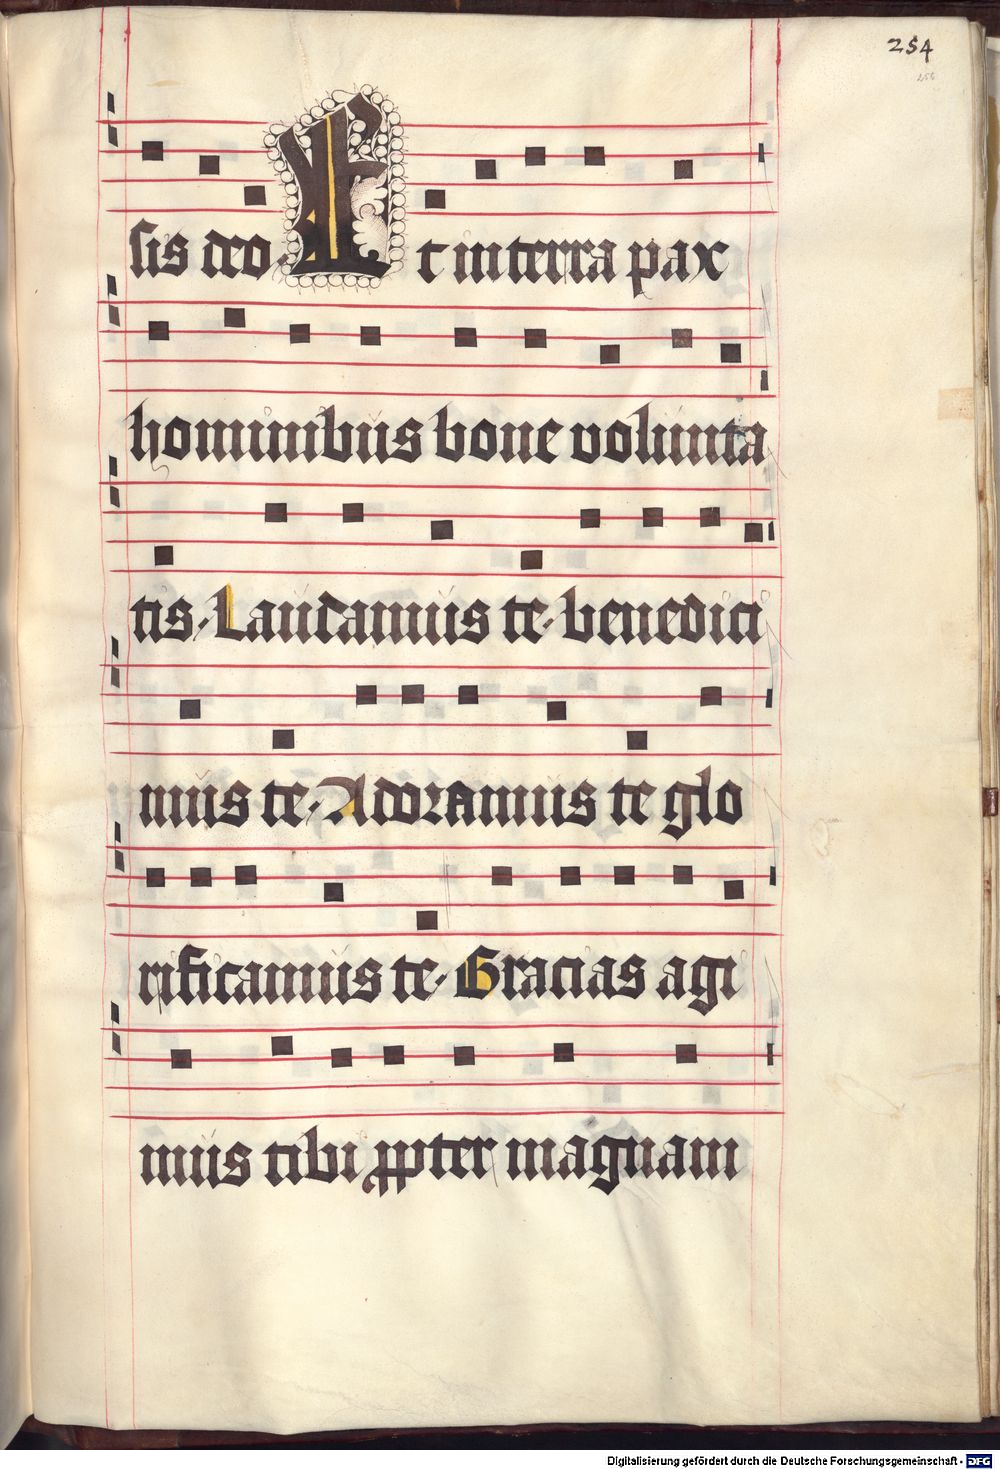 254
256
sis deo. Et in terra pax
hominibus bone volunta
tis. Laudamus te. benedici
mus te. Adoramus te glo
rificamus te. Gracias agi
mus tibi ppter magnam
Digitalisierung gefördert durch die Deutsche Forschungsgemeinschaft - DFG